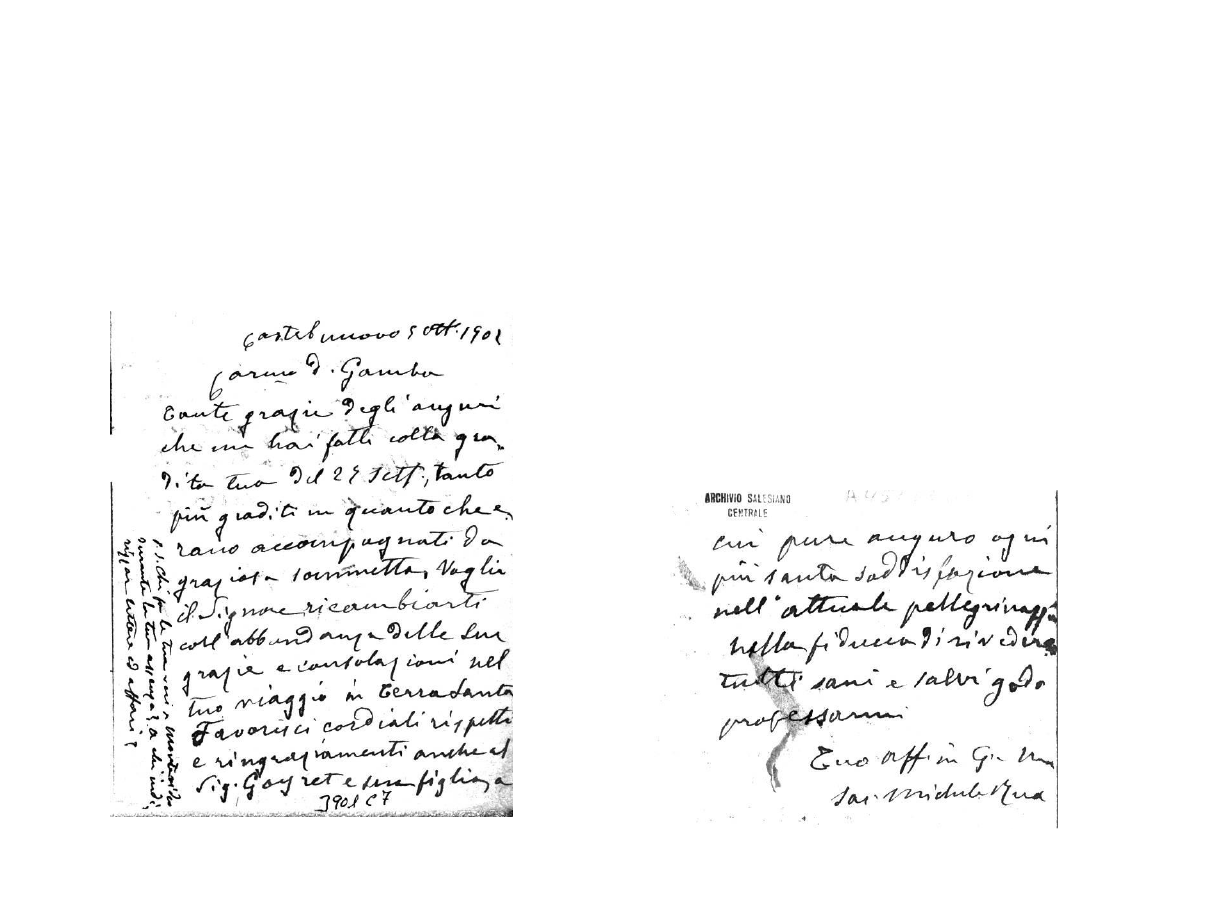 Castelnuovo 5 Ott. 1901
Carmo D. Gamba
Tante grazie degli auguri
che mi hai fatti colla gra-
dita tua del 29 Sett., tanto
più graditi in quanto che e-
rano accompagnati da
graziosa sommetta. Voglia
il Signore ricambiarti
coll'abbondanza delle sue
grazie e consolazioni nel
tuo viaggio in Terra Santa
Favorisci cordiali rispetti
e ringraziamenti anche al
Sig. Gayret e sua figlia, a
3901 C7
P.S. Chi fa le tue veci a Montevideo
durante la tua assenza? a chi indi-
rizzar lettere ed affari?
ARCHIVIO SALESIANO
CENTRALE
cui pure auguro ogni
più santa soddisfazione
nell'attuale pellegrinaggio
nella fiducia di rivedere
tutti sani e salvi godo
professarmi
Tuo aff.mo in G. e M.
Sac. Michele Rua